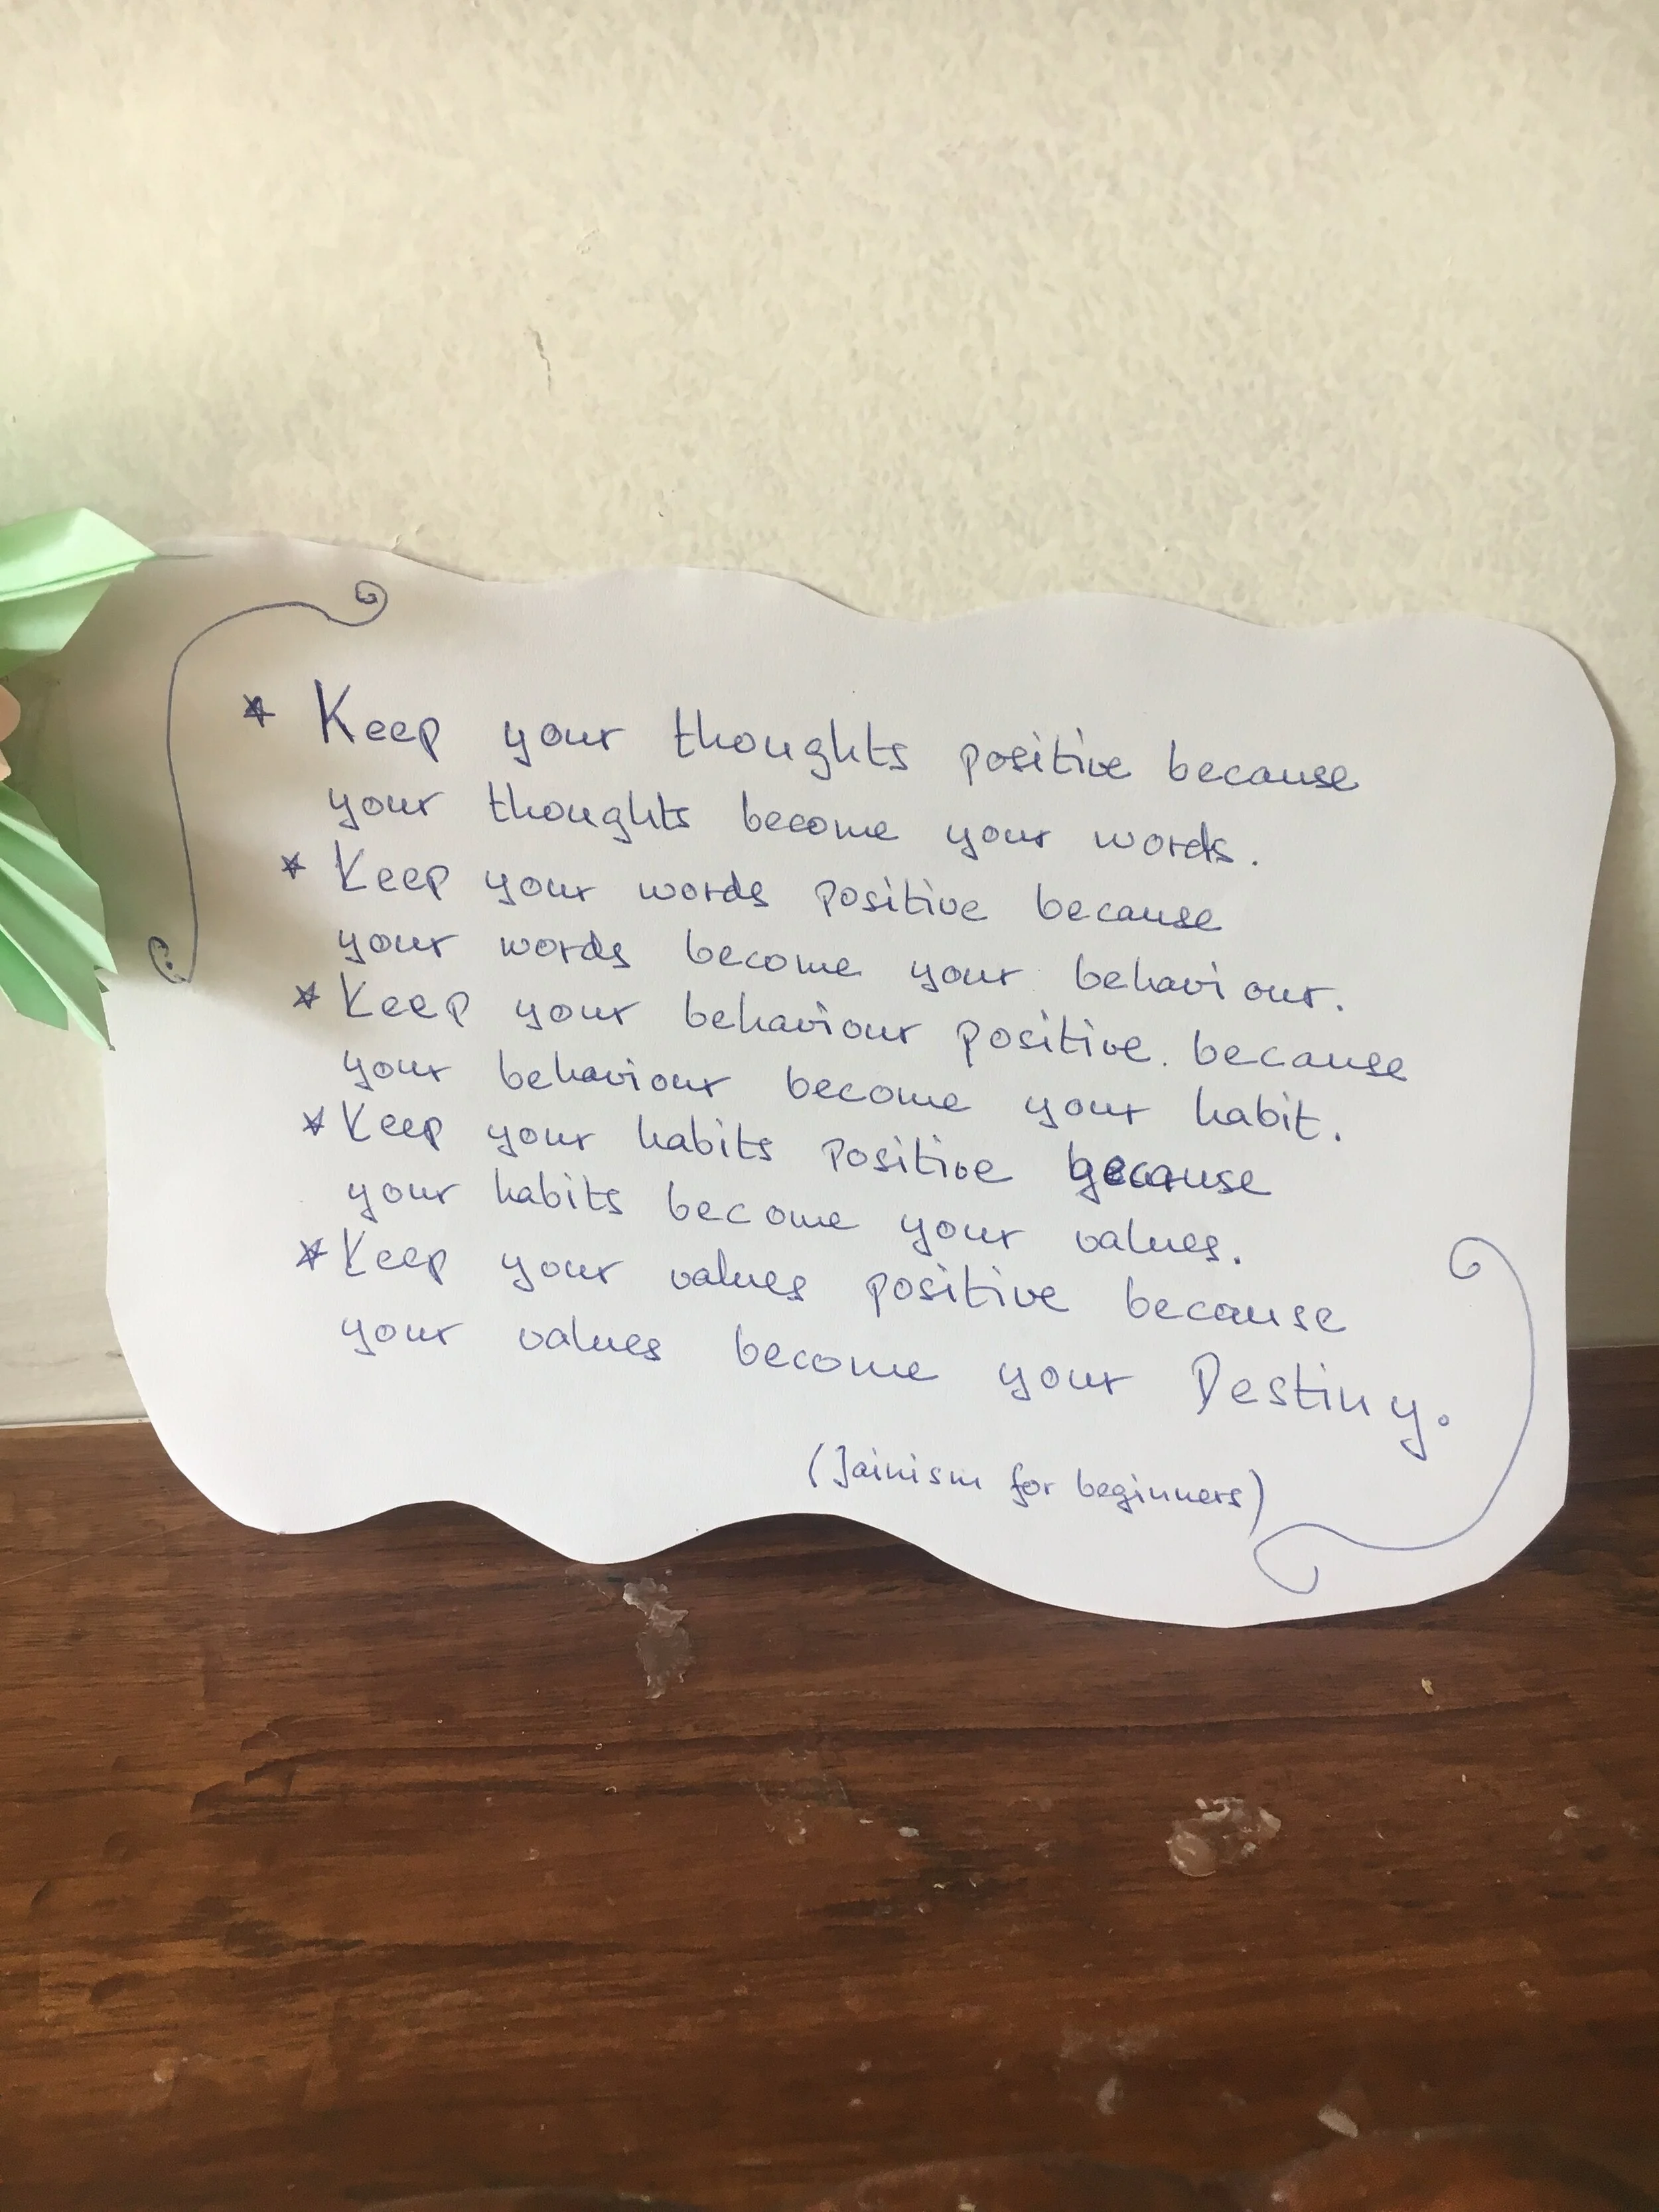 * Keep your thoughts positive because
your thoughts become your words.
* Keep your words positive because
your words become your behaviour.
* Keep your behaviour positive. because
your behaviour become your habit.
* Keep your habits positive because
your habits become your values.
* Keep your values positive because
your values become your Destiny.
(Jainism for beginners)